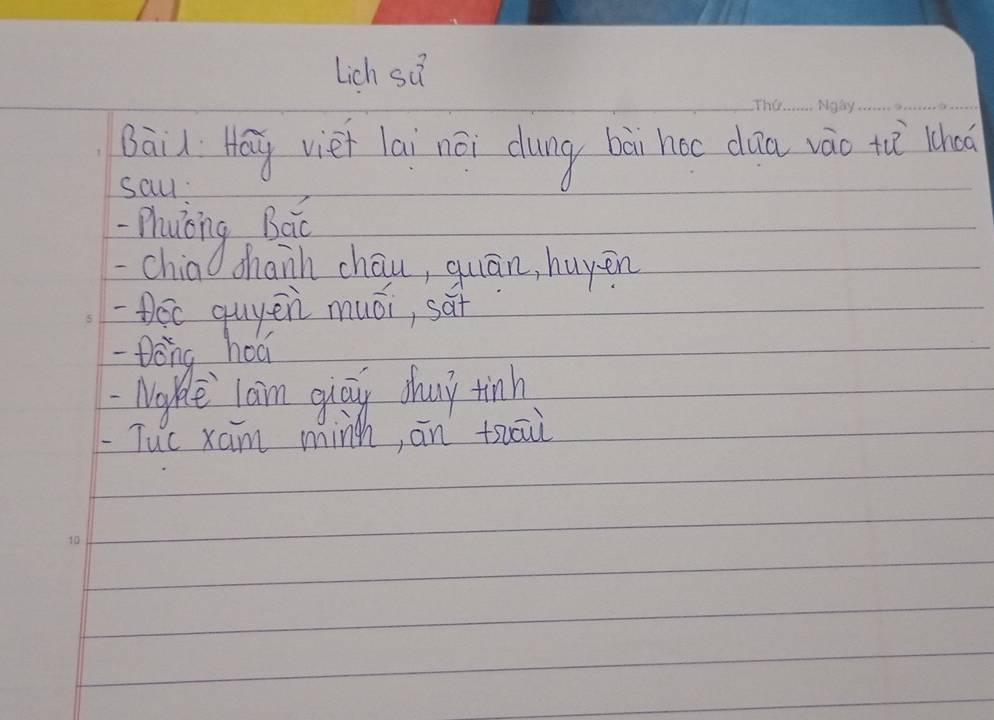 Lịch sử
Thứ....... Ngày.......................
Bài 1: Hãy viết lại nội dung bài học dựa vào từ khoá
sau:
- Phương Bắc
- Chia thành châu, quận, huyện
- Độc quyền muối, sắt
5
- Đồng hoá
- Nghề làm giấy thuỷ tinh
- Tục xăm mình, ăn trầu
10